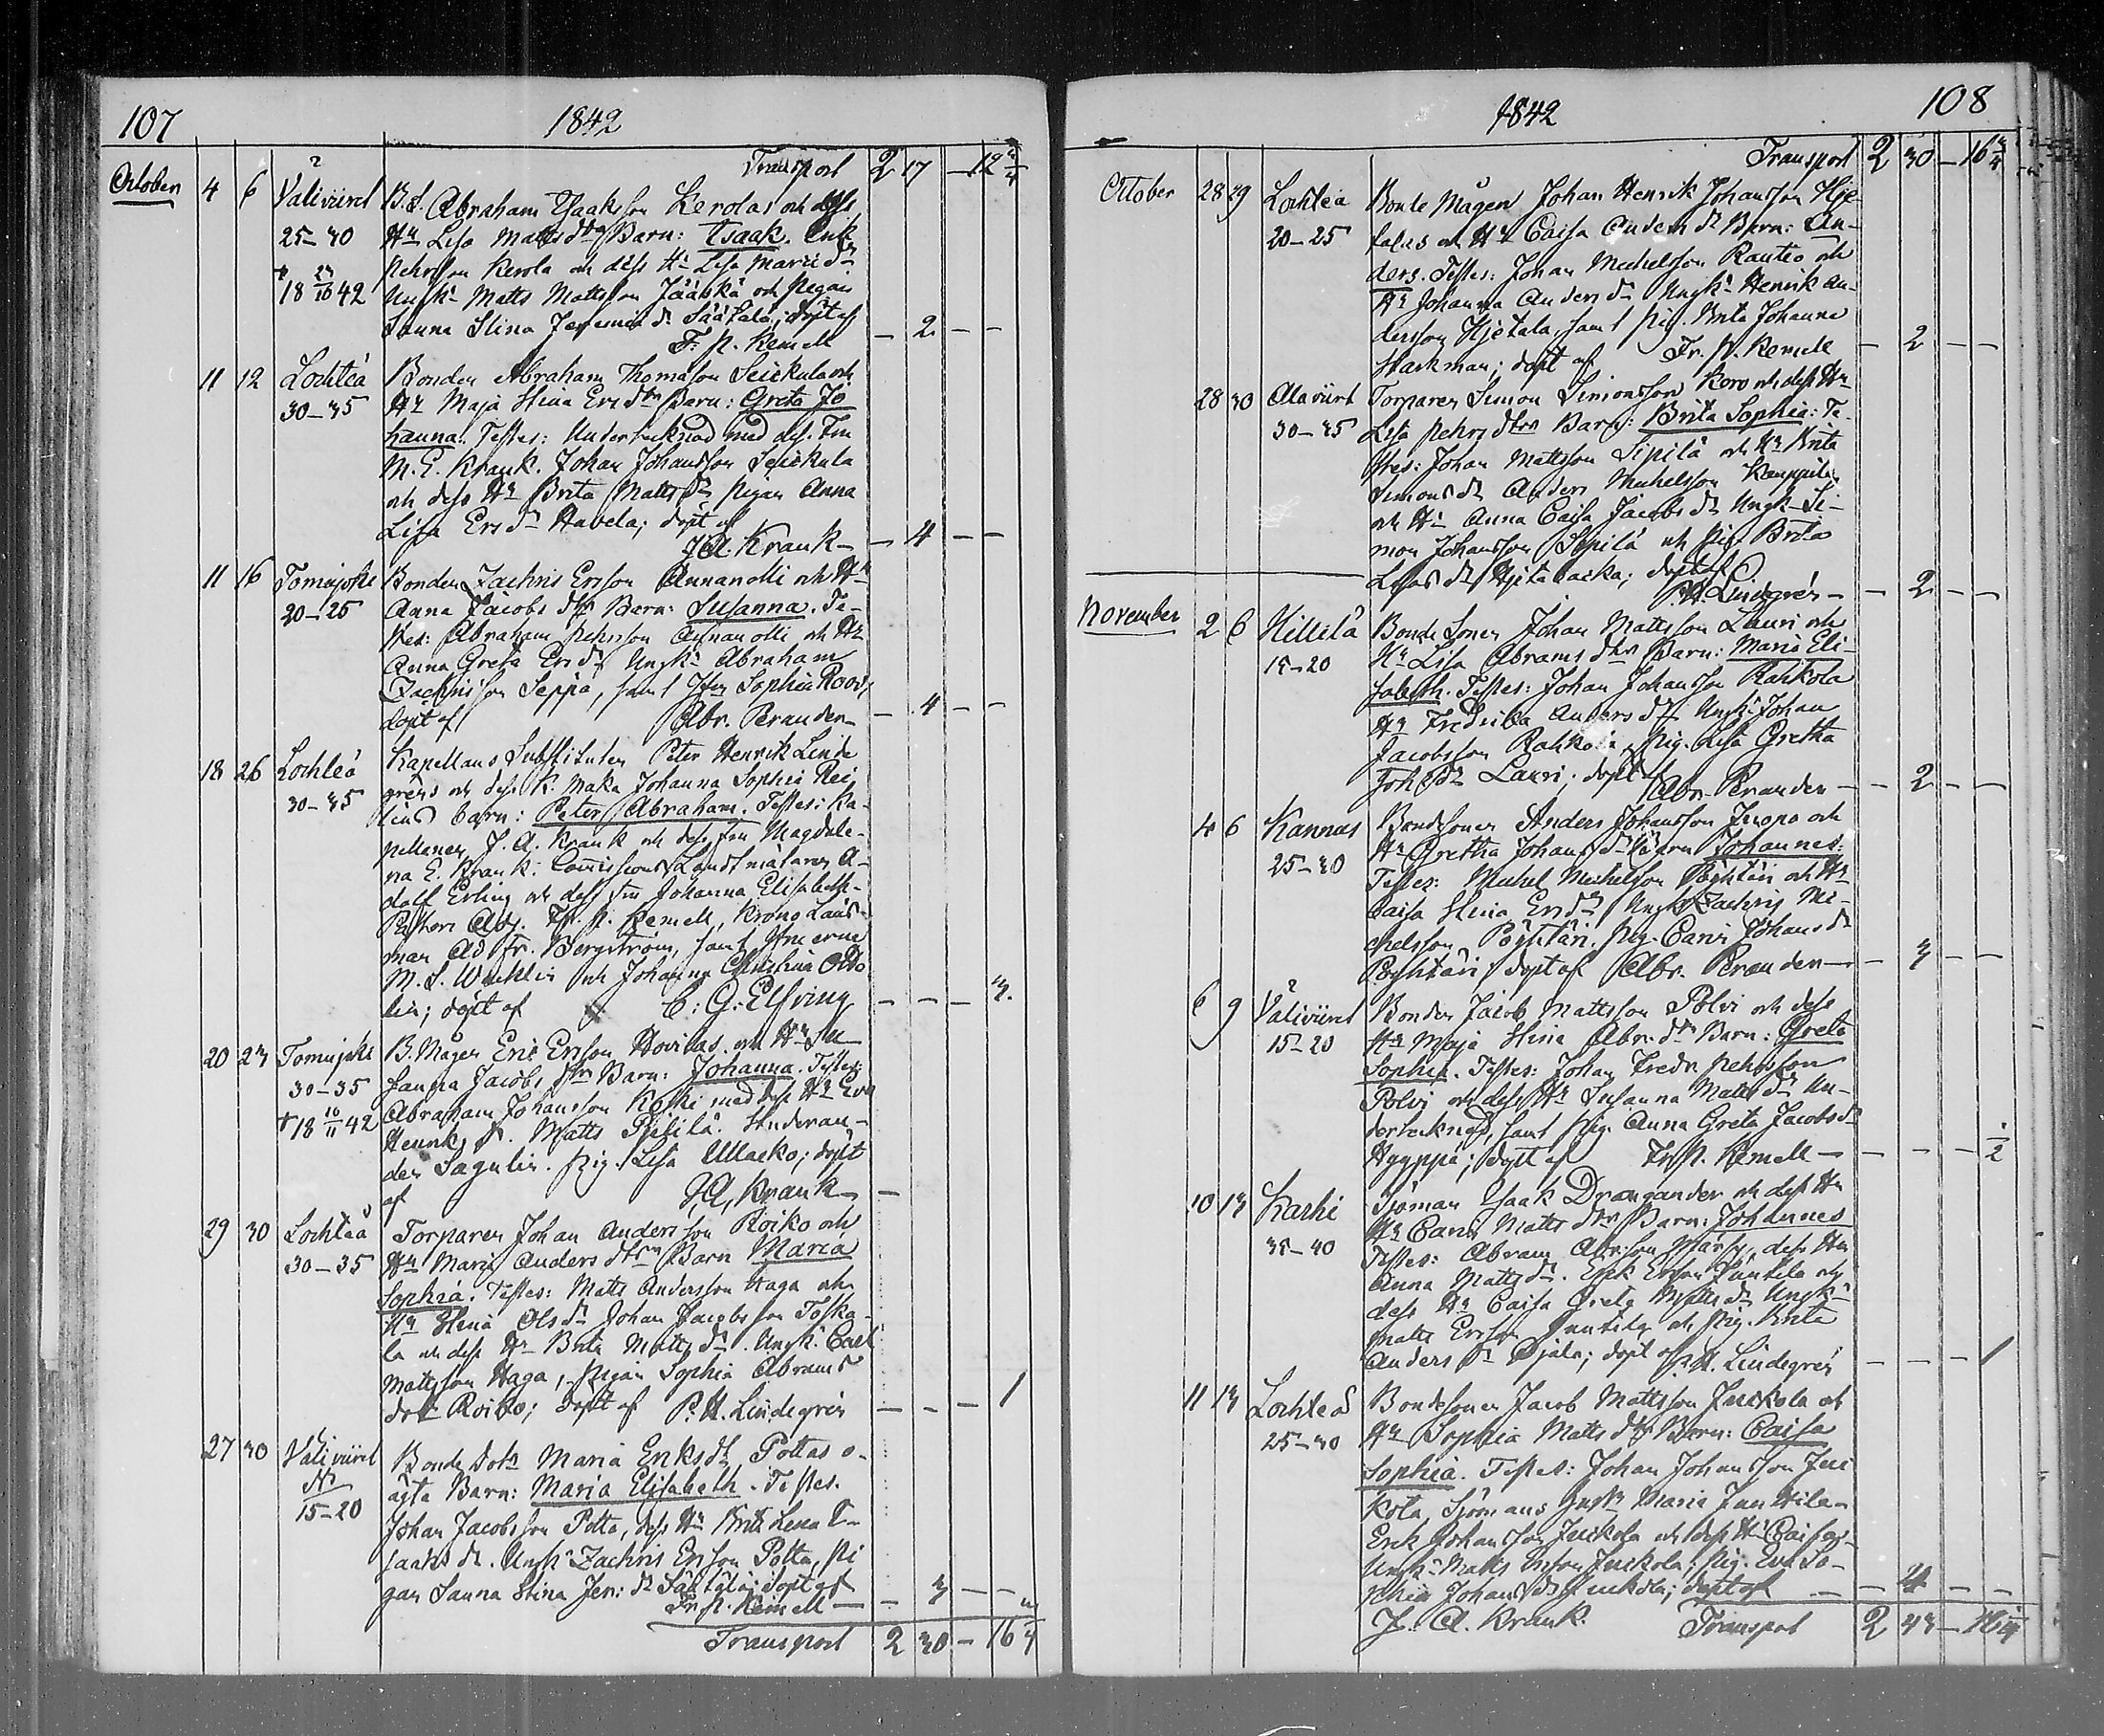 107
1842
Transport 2 17 — 12 3/4
October 4 6 Yliviirret B.S. Abraham Isaaksson Kerolas och dess
25–30 Hu Lisa Mattsdtrs Barn: Isaak. Erik
Pehrsson Kerola och dess Hu Lisa Mariæ dr
† 18 23/10 42 Ungk: Matts Mattsson Jääskä och Pigan
Sanna Stina Jeremiæ dr Säätälä; döpt af
Fr. P. Kemell — 2 — —
11 12 Lochteå Bonden Abraham Thomasson Seickula och
30–35 Hu Maja Stina Ersdtrs Barn: Greta Jo
hanna. Testes: Undertecknad med dess Fru
M. E. Krank. Johan Johansson Seickula
och dess Hu Brita Matts dr Pigan Anna
Lisa Ers dr Havela; döpt af
J. A. Krank — — 4 — —
11 16 Tomujoki Bonden Zachris Ersson Annanolli och Hu
20–25 Anna Jacobs dtrs Barn: Susanna. Te-
stes: Abraham Pehrsson Annanolli och Hu
Anna Greta Ers dr Ungk: Abraham
Zachrisson Seppä, samt Jfru Sophia Roos,
döpt af Abr. Perander — — 4 — —
18 26 Lochteå Kapellans Substituten Peter Henrik Linde
30–35 gréns och dess K. Maka Johanna Sophia Rei
lins barn: Peter Abraham. Testes: Ka-
pellanen J. A. Krank och dess Fru Magdale-
na E. Krank: Comissions Landtmätaren A-
dolf Erling och dess Fru Johanna Elisabeth.
Pastors Adj. Fr. P. Kemell, Krono Läns-
man Ad. Fr. Bergström, samt Jfruerne
M. S. Wacklin och Johanna Christina
lin; döpt af C. G. Elfving — — — 3.
20 23 Tomujoki B. Mågen Eric Ersson Hovilas och Hu Su
30–35 sanna Jacobs dtrs Barn: Johanna. Testes:
† 18 10/11 42 Abraham Johansson Koski med dess Hu Eva
Henriks dr. Matts Pietilä. Studeran-
den Sagulin. Pig. Lisa Ullakko; döpt
af J. A. Krank —
29 30 Lochteå Torparen Johan Andersson Roiko och
30–35 Hu Maria Anders dtrs Barn Maria
Sophia. Testes: Matts Andersson Haga och
Hu Stina Ols dr Johan Jacobsson Toska-
la och dess Hu Brita Matts dr. Ungk: Carl
Mattsson Haga, Pigan Sophia Abrams
dotr Roiko; döpt af P. H. Lindegrén — — — 1
27 30 Yliviirret Bonde Dotr Maria Eriks dr Pottas o-
15–20 ägta Barn: Maria Elisabeth. Testes.
Johan Jacobsson Potta, dess Hu Brita Lena I-
saaks dr. Ungk: Zachris Ersson Potta, Pi
gan Sanna Stina Jer: dr Säätälä; döpt af
Fr. P. Kemell — — 3 — —
Transport 2 30 — 16 3/4
1842
108
Transport 2 30 — 16 3/4
October 28 29 Lochteå Bonde Mågen Johan Henrik Johansson Hie
20–25 talas och Hu Caisa Anders dr Barn: An-
ders. Testes: Johan Michelsson Rautio och
Hu Johanna Anders dr Ungk: Henrik An-
dersson Hietala, samt Pig. Brita Johanna
Starkman; döpt af Fr. P. Kemell — 2 — —
28 30 Alaviirt Torparen Simon Simonsson Koro och dess Hu
30–35 Lisa Pehrs dtrs Barn: Brita Sophia: Te-
stes: Johan Mattsson Sipilä och Hu Brita
Simons dr Anders Michelsson Kauppila
och Hu Anna Caisa Jacobs dr Ungk. Si-
mon Johansson Sipilä och Pig. Brita
Lisas dr; döpt af
P. H. Lindegrén — — 2 — —
November 2 6 Hillilä Bonde Sonen Johan Mattsson Lauri och
15–20 Hu Lisa Abrams dtrs Barn: Maria Eli-
sabeth. Testes: Johan Johansson Rahkola
Hu Fredrica Anders dr Ungk: Johan
Jacobsson Rahkola, Pig. Lisa Gretha
Joh: dr Lauri; döpt af Abr. Perander — — 2 — —
4 6 Kannus Bondesonen Anders Johansson Juopo och
25–30 Hu Gretha Johans dr Barn Johannes:
Testes: Michel Michelsson Pöyhtäri och Hu
Caisa Stina Ers dr Ungk Zachris Mi-
chelsson Pöyhtäri. Pig. Carin Johans dr
Pöyhtäri; döpt af Abr. Perander — — 3 — —
6 9 Yliviirret Bonden Jacob Mattsson Polvi och dess
15–20 Hu Maja Stina Abr. dtrs Barn: Greta
Sophia. Testes: Johan Fredr. Pehrsson
Polvi och dess Hu Susanna Matts dr Un-
dertecknad, samt Pig. Anna Greta Jacobs dr
Hyyppä; döpt af Fr. P. Kemell — — — — 1/2
10 13 Karhi Sjöman Isaak Drougander och dess Hu
35–40 Hu Carin Matts dtrs Barn: Johannes
Testes: Abram Abr:son Märsy, dess Hu
Anna Matts dr. Erik Ersson Juntila och
dess Hu Caisa Greta Matts dr Ungk:
Matts Ersson Juntila och Pig. Brita
Anders dr Ojala; döpt af P. H. Lindegrén — — — 1
11 13 Lochteå Bondesonen Jacob Mattsson Juckola och
25–30 Hu Sophia Matts dtrs Barn: Caisa
Sophia. Testes: Johan Johansson Juc
kola, Sjömans Maria Junttila.
Erik Johansson Juckola och dess Hu Caisa
Ungk: Matts Ersson Juckola; Pig. Eva So-
phia Johans dr Juckola; döpt af — — 4 — —
J. A. Krank. Transport 2 43 — 18 1/4